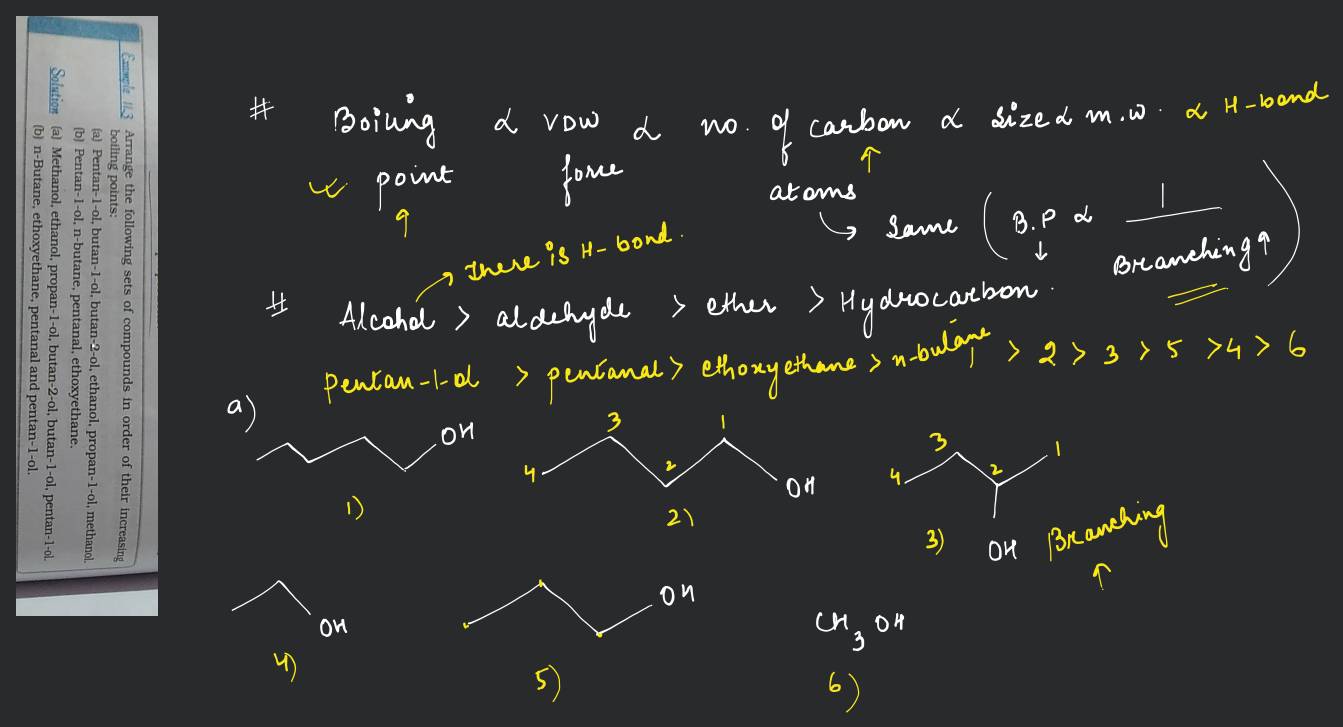 Example 11.3 Arrange the following sets of compounds in order of their increasing
boiling points:
(a) Pentan-1-ol, butan-1-ol, butan-2-ol, ethanol, propan-1-ol, methanol.
(b) Pentan-1-ol, n-butane, pentanal, ethoxyethane.
Solution (a) Methanol, ethanol, propan-1-ol, butan-2-ol, butan-1-ol, pentan-1-ol.
(b) n-Butane, ethoxyethane, pentanal and pentan-1-ol.
# Boiling α VDW α no. of carbon α size α m.w. α H-bond
point force atoms
↑ ↑
→ Same ( B.P α 1 / Branching ↑ )
↓
→ There is H-bond.
# Alcohol > aldehyde > ether > Hydrocarbon.
Pentan-1-ol > pentanal > ethoxyethane > n-butane
1 > 2 > 3 > 5 > 4 > 6
a)
OH
1)
4 3 2 1 OH
2)
4 3 2 1
OH
3)
Branching
↑
OH
4)
OH
5)
CH3 OH
6)